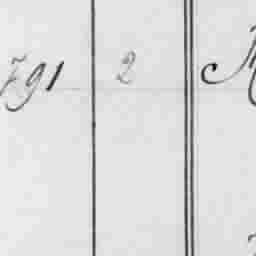 791 2